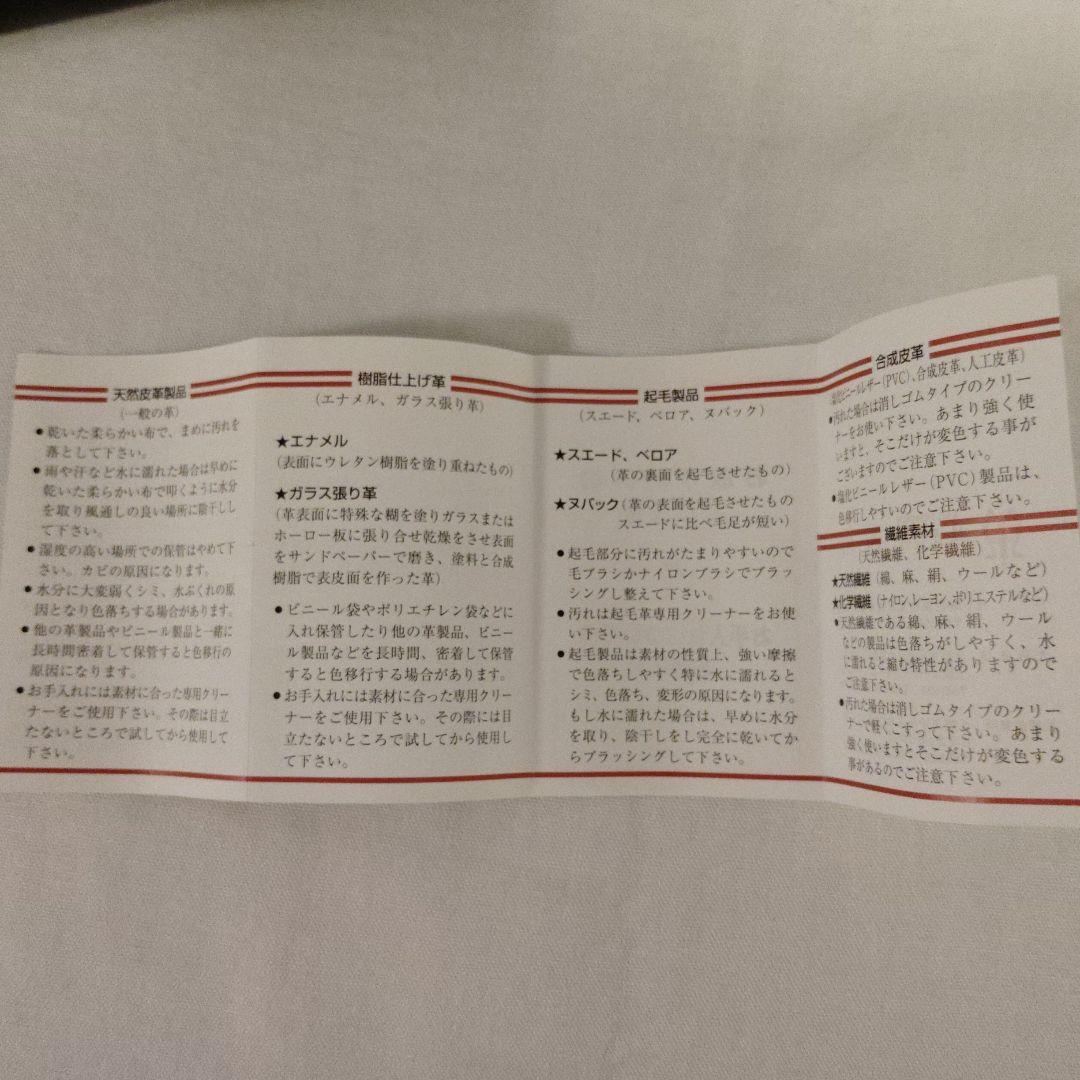 天然皮革製品
(一般の革)
●乾いた柔らかい布で、まめに汚れを
落として下さい。
●雨や汗など水に濡れた場合は早めに
乾いた柔らかい布で叩くように水分
を取り風通しの良い場所に陰干しし
て下さい。
●湿度の高い場所での保管はやめて下
さい。カビの原因になります。
●水分に大変弱くシミ、水ぶくれの原
因となり色落ちする場合があります。
●他の革製品やビニール製品と一緒に
長時間密着して保管すると色移行の
原因になります。
●お手入れには素材に合った専用クリー
ナーをご使用下さい。その際は目立
たないところで試してから使用して
下さい。
樹脂仕上げ革
(エナメル、ガラス張り革)
★エナメル
(表面にウレタン樹脂を塗り重ねたもの)
★ガラス張り革
(革表面に特殊な糊を塗りガラスまたは
ホーロー板に張り合せ乾燥をさせ表面
をサンドペーパーで磨き、塗料と合成
樹脂で表皮面を作った革)
●ビニール袋やポリエチレン袋などに
入れ保管したり他の革製品、ビニー
ル製品などを長時間、密着して保管
すると色移行する場合があります。
●お手入れには素材に合った専用クリー
ナーをご使用下さい。その際には目
立たないところで試してから使用し
て下さい。
起毛製品
(スエード、ベロア、ヌバック)
★スエード、ベロア
(革の裏面を起毛させたもの)
★ヌバック(革の表面を起毛させたもの
スエードに比べ毛足が短い)
●起毛部分に汚れがたまりやすいので
毛ブラシかナイロンブラシでブラッ
シングし整えて下さい。
●汚れは起毛革専用クリーナーをお使
い下さい。
●起毛製品は素材の性質上、強い摩擦
で色落ちしやすく特に水に濡れると
シミ、色落ち、変形の原因になります。
もし水に濡れた場合は、早めに水分
を取り、陰干しをし完全に乾いてか
らブラッシングして下さい。
合成皮革
(塩化ビニールレザー(PVC)、合成皮革、人工皮革)
●汚れた場合は消しゴムタイプのクリー
ナーをお使い下さい。あまり強く使
いますと、そこだけが変色する事が
ございますのでご注意下さい。
●塩化ビニールレザー(PVC)製品は、
色移行しやすいのでご注意下さい。
繊維素材
(天然繊維、化学繊維)
★天然繊維(綿、麻、絹、ウールなど)
★化学繊維(ナイロン、レーヨン、ポリエステルなど)
●天然繊維である綿、麻、絹、ウール
などの製品は色落ちがしやすく、水
に濡れると縮む特性がありますので
ご注意下さい。
●汚れた場合は消しゴムタイプのクリー
ナーで軽くこすって下さい。あまり
強く使いますとそこだけが変色する
事があるのでご注意下さい。